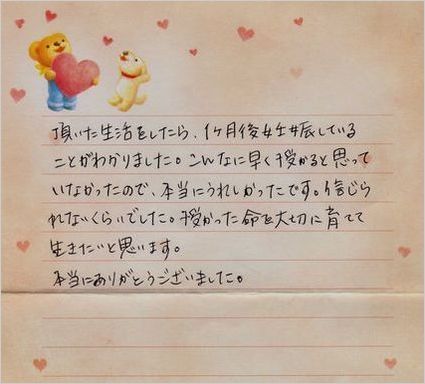 頂いた生活をしたら、1ヶ月後妊娠している
ことがわかりました。こんなに早く授かると思って
いなかったので、本当にうれしかったです。信じら
れないくらいでした。授かった命を大切に育てて
生きたいと思います。
本当にありがとうございました。